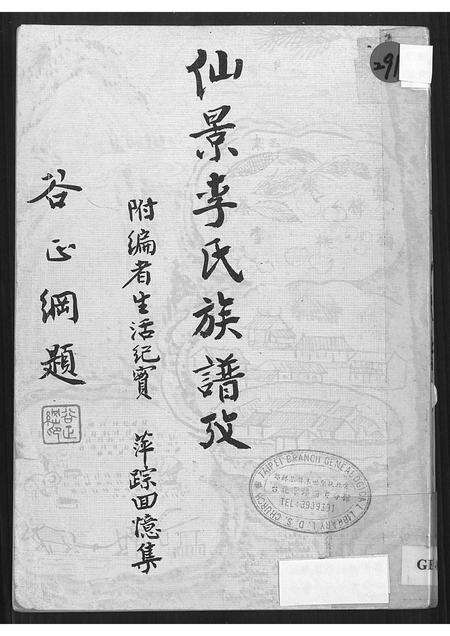 仙景李氏族譜攷
附編者生活紀實 萍踪回憶集
谷正綱題
谷正綱印
291
TAIPEI BRANCH GENEALOGICAL LIBRARY L.D.S. CHURCH
TEL:3939331